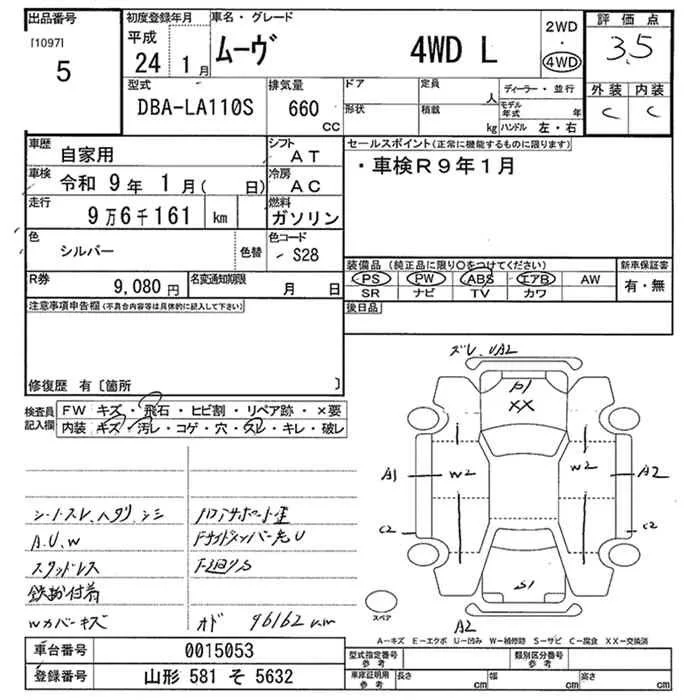 出品番号
[1097]
5
初度登録年月
平成
24 1月
車名・グレード
ムーヴ 4WD L
2WD
・
4WD
評価点
3.5
外装 内装
C C
型式
DBA-LA110S
排気量
660
CC
ドア
定員
人
ディーラー・並行
形状
積載
kg
モデル年式 年
ハンドル 左・右
車歴
自家用
シフト
AT
セールスポイント(正常に機能するものに限ります)
・車検R9年1月
車検
令和 9年 1月( 日)
冷房
AC
走行
9万6千161 km
燃料
ガソリン
色
シルバー
色替
色コード
S28
装備品(純正品に限り〇をつけてください)
新車保証書
PS PW ABS エアB AW
SR ナビ TV カワ
有・無
R券
9,080円
名変通知期限
月 日
後日品
注意事項申告欄(不具合内容等は具体的に記入して下さい)
修復歴 有〔箇所 〕
検査員
記入欄
FW キズ・飛石・ヒビ割・リペア跡・×要
内装 キズ・汚レ・コゲ・穴・スレ・キレ・破レ
シートスレ、ヘタリ、シミ
A.U.W
スタッドレス
鉄粉付着
Wカバーキズ
コアサポート歪
Fサイドメンバー先U
F廻りS
オド 96162km
ズレ、UA2
P1
XX
A1
W2
W2
A2
C2
C2
S1
A2
スペア
A-キズ E-エクボ U-凹み W-補修跡 S-サビ C-腐食 XX-交換済
車台番号
0015053
登録番号
山形 581 そ 5632
型式指定番号
参考
類別区分番号
参考
車庫証明用
参考
長さ cm
幅 cm
高さ cm